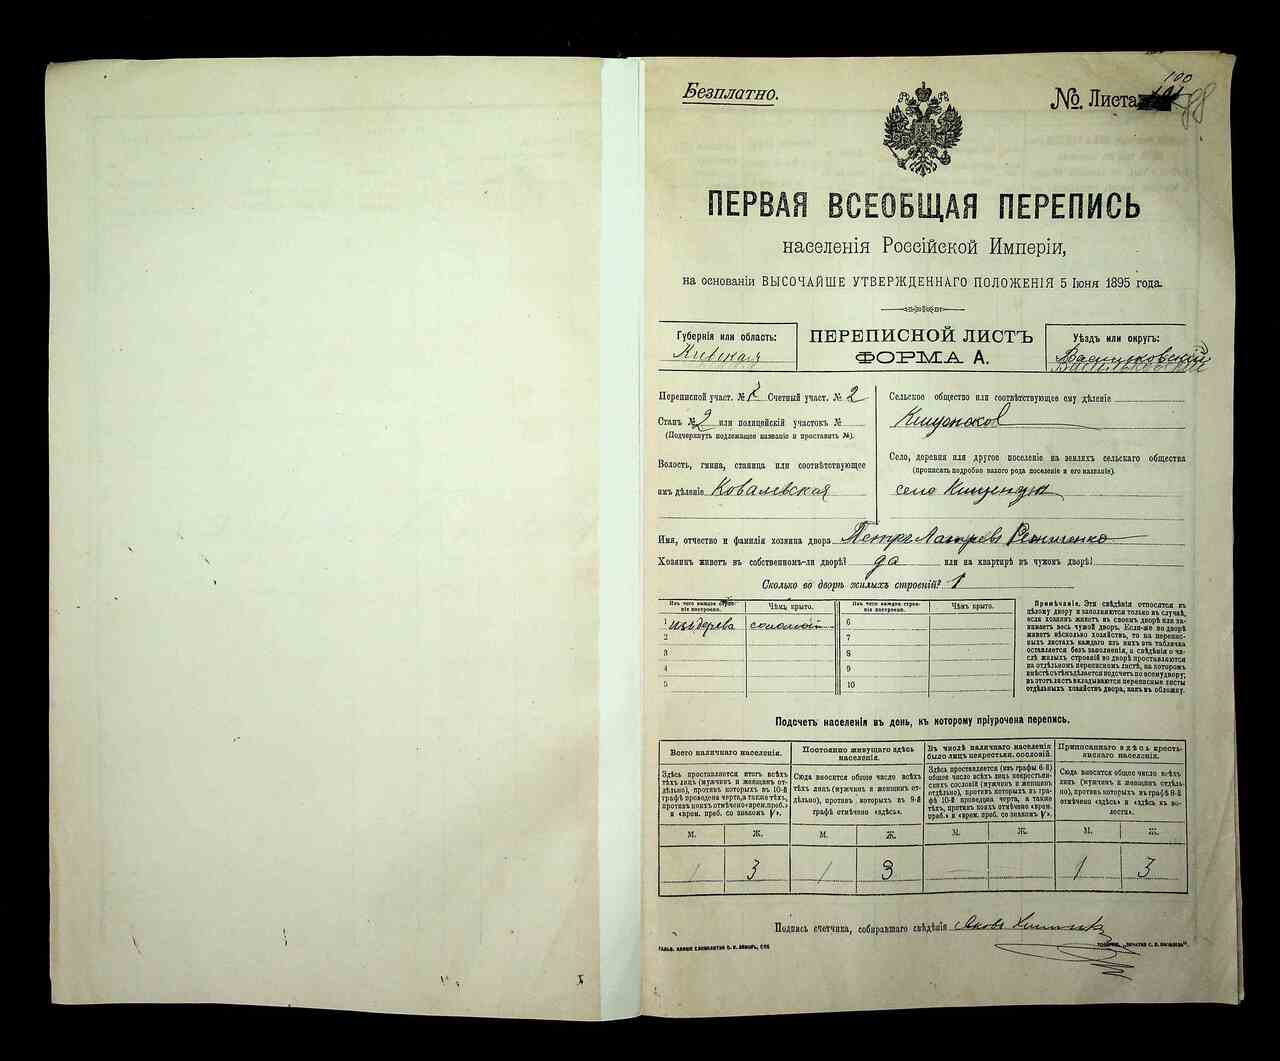 Безплатно.
100
№. Листа 88
ПЕРВАЯ ВСЕОБЩАЯ ПЕРЕПИСЬ
населенія Россійской Имперіи,
на основаніи ВЫСОЧАЙШЕ УТВЕРЖДЕННАГО ПОЛОЖЕНІЯ 5 Іюня 1895 года.
Губернія или область:
Кіевская
ПЕРЕПИСНОЙ ЛИСТЪ
ФОРМА А.
Уѣздъ или округъ:
Васильковскій
Переписной участ. № Счетный участ. № 2
Станъ № 2 или полицейскій участокъ №
(Подчеркнуть подлежащее названіе и проставить №).
Волость, гмина, станица или соотвѣтствующее
имъ дѣленіе Ковалевская
Сельское общество или соотвѣтствующее ему дѣленіе
Село, деревня или другое поселеніе на земляхъ сельскаго общества
(прописать подробно какого рода поселеніе и его названіе).
село
Имя, отчество и фамилія хозяина двора Петръ
Хозяинъ живетъ въ собственномъ-ли дворѣ? да или на квартирѣ въ чужомъ дворѣ?
Сколько во дворѣ жилыхъ строеній? 1
Изъ чего каждое строеніе построено.
Чѣмъ крыто.
Изъ чего каждое строеніе построено.
Чѣмъ крыто.
1 изъ дерева соломой 6
2 7
3 8
4 9
5 10
Примѣчаніе. Эти свѣдѣнія относятся къ
цѣлому двору и заполняются только въ случаѣ,
если хозяинъ живетъ въ своемъ дворѣ или занимаетъ
весь чужой дворъ. Если-же во дворѣ
живетъ нѣсколько хозяйствъ, то на переписныхъ
листахъ каждаго изъ нихъ эта табличка
оставляется безъ заполненія, а свѣдѣнія о числѣ
жилыхъ строеній во дворѣ проставляются
на отдѣльномъ переписномъ листѣ, на которомъ
вмѣстѣ съ тѣмъ дѣлается подсчетъ по всему двору;
въ этотъ листъ вкладываются переписные листы
отдѣльныхъ хозяйствъ двора, какъ въ обложку.
Подсчетъ населенія въ день, къ которому пріурочена перепись.
Всего наличнаго населенія.
Здѣсь проставляется итогъ всѣхъ
тѣхъ лицъ (мужчинъ и женщинъ отдѣльно),
противъ которыхъ въ 10-й
графѣ проведена черта, а также тѣхъ,
противъ коихъ отмѣчено «врем. преб.»
и «врем. преб. со знакомъ V».
Постоянно живущаго здѣсь
населенія.
Сюда вносится общее число всѣхъ
тѣхъ лицъ (мужчинъ и женщинъ отдѣльно),
противъ которыхъ въ 9-й
графѣ отмѣчено «здѣсь».
Въ числѣ наличнаго населенія
было лицъ некрестьян. сословій.
Здѣсь проставляется (изъ графы 6-й)
общее число всѣхъ лицъ некрестьянскихъ
сословій (мужчинъ и женщинъ
отдѣльно), противъ которыхъ въ графѣ
10-й проведена черта, а также
тѣхъ, противъ коихъ отмѣчено «врем.
преб.» и «врем. преб. со знакомъ V».
Приписаннаго здѣсь крестьянскаго
населенія.
Сюда вносится общее число всѣхъ
лицъ (мужчинъ и женщинъ отдѣльно),
противъ которыхъ въ графѣ 8-й
отмѣчено «здѣсь» и «здѣсь къ волости».
М. Ж. М. Ж. М. Ж. М. Ж.
1 3 1 3 1 3
Подпись счетчика, собиравшаго свѣдѣнія Яковъ